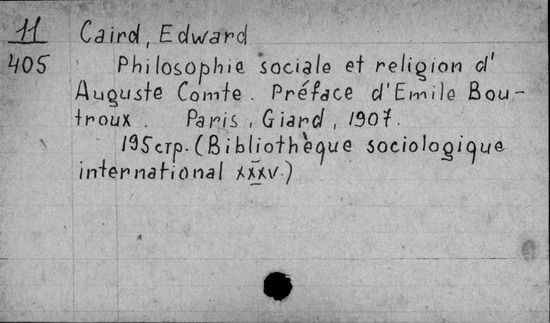 11 Caird, Edward
405 Philosophie sociale et religion d'
Auguste Comte. Préface d'Emile Bou-
troux. Paris, Giard, 1907.
195стр. (Bibliothèque sociologique
international XXXV.)